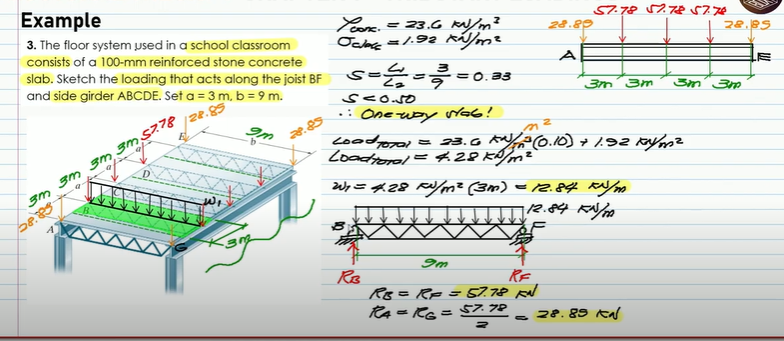 Example
3. The floor system used in a school classroom
consists of a 100-mm reinforced stone concrete
slab. Sketch the loading that acts along the joist BF
and side girder ABCDE. Set a = 3 m, b = 9 m.
γconc. = 23.6 kN/m²
σclass = 1.92 kN/m²
S = L₁/L₂ = 3/9 = 0.33
S < 0.50
∴ One way slab!
Load Total = 23.6 kN/m³ (0.10) + 1.92 kN/m²
m²
Load Total = 4.28 kN/m²
W₁ = 4.28 kN/m² (3m) = 12.84 kN/m
12.84 kN/m
B F
9m
RB RF
RB = RF = 57.78 kN
RA = RG = 57.78/2 = 28.89 kN
57.78 57.78 57.78
28.89 28.89
A E
3m 3m 3m 3m
28.89
57.78
E
9m
b
28.89
3m 3m 3m 3m
a a a a
D
C
B
W₁
28.89
A
G
3m